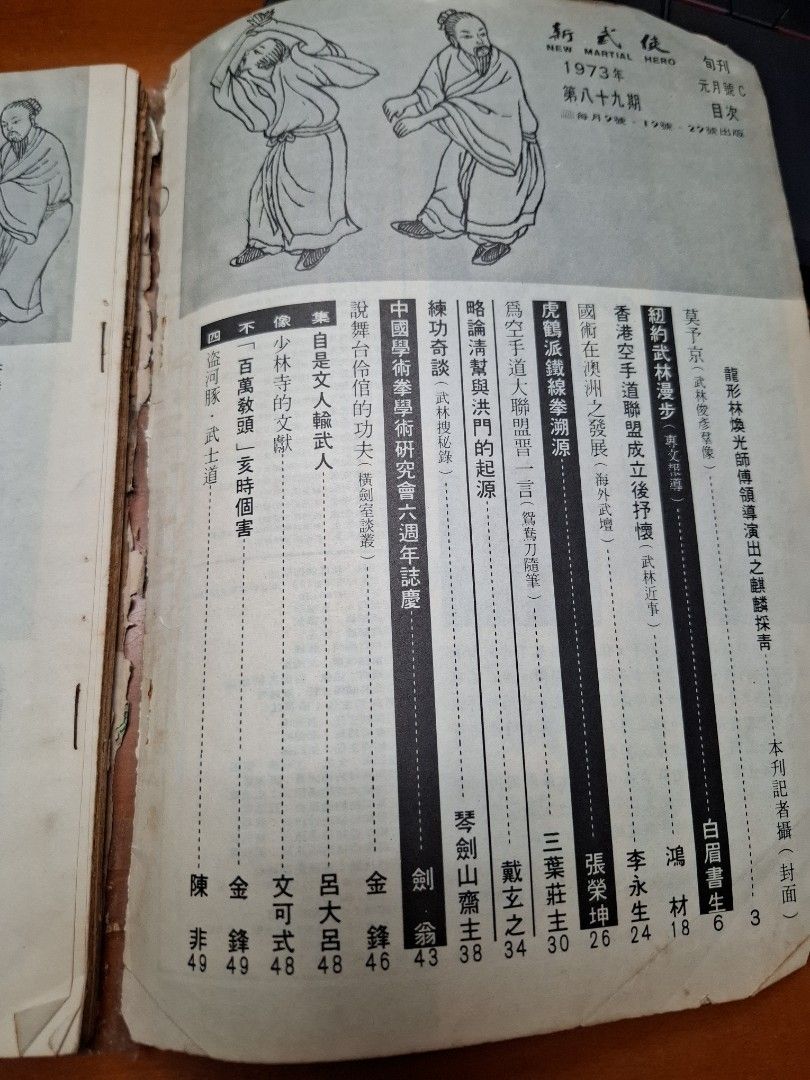 新武俠
NEW MARTIAL HERO
1973年
第八十九期
旬刊
元月號C
目次
每月9號·19號·29號出版
龍形林煥光師傅領導演出之麒麟採青 本刊記者攝（封面）
莫予京（武林俊彥羣像） 3
紐約武林漫步（專文報導） 白眉書生 6
香港空手道聯盟成立後抒懷（武林近事） 鴻材 18
國術在澳洲之發展（海外武壇） 李永生 24
虎鶴派鐵線拳溯源 張榮坤 26
爲空手道大聯盟晋一言（鴛鴦刀隨筆） 三葉莊主 30
略論淸幫與洪門的起源 戴玄之 34
練功奇談（武林搜秘錄） 琴劍山齋主 38
中國學術拳學術研究會六週年誌慶 劍翁 43
說舞台伶倌的功夫（橫劍室談叢） 金鋒 46
四不像集
自是文人輸武人 呂大呂 48
少林寺的文獻 文可式 48
「百萬敎頭」亥時個害 金鋒 49
盜河豚·武士道 陳非 49